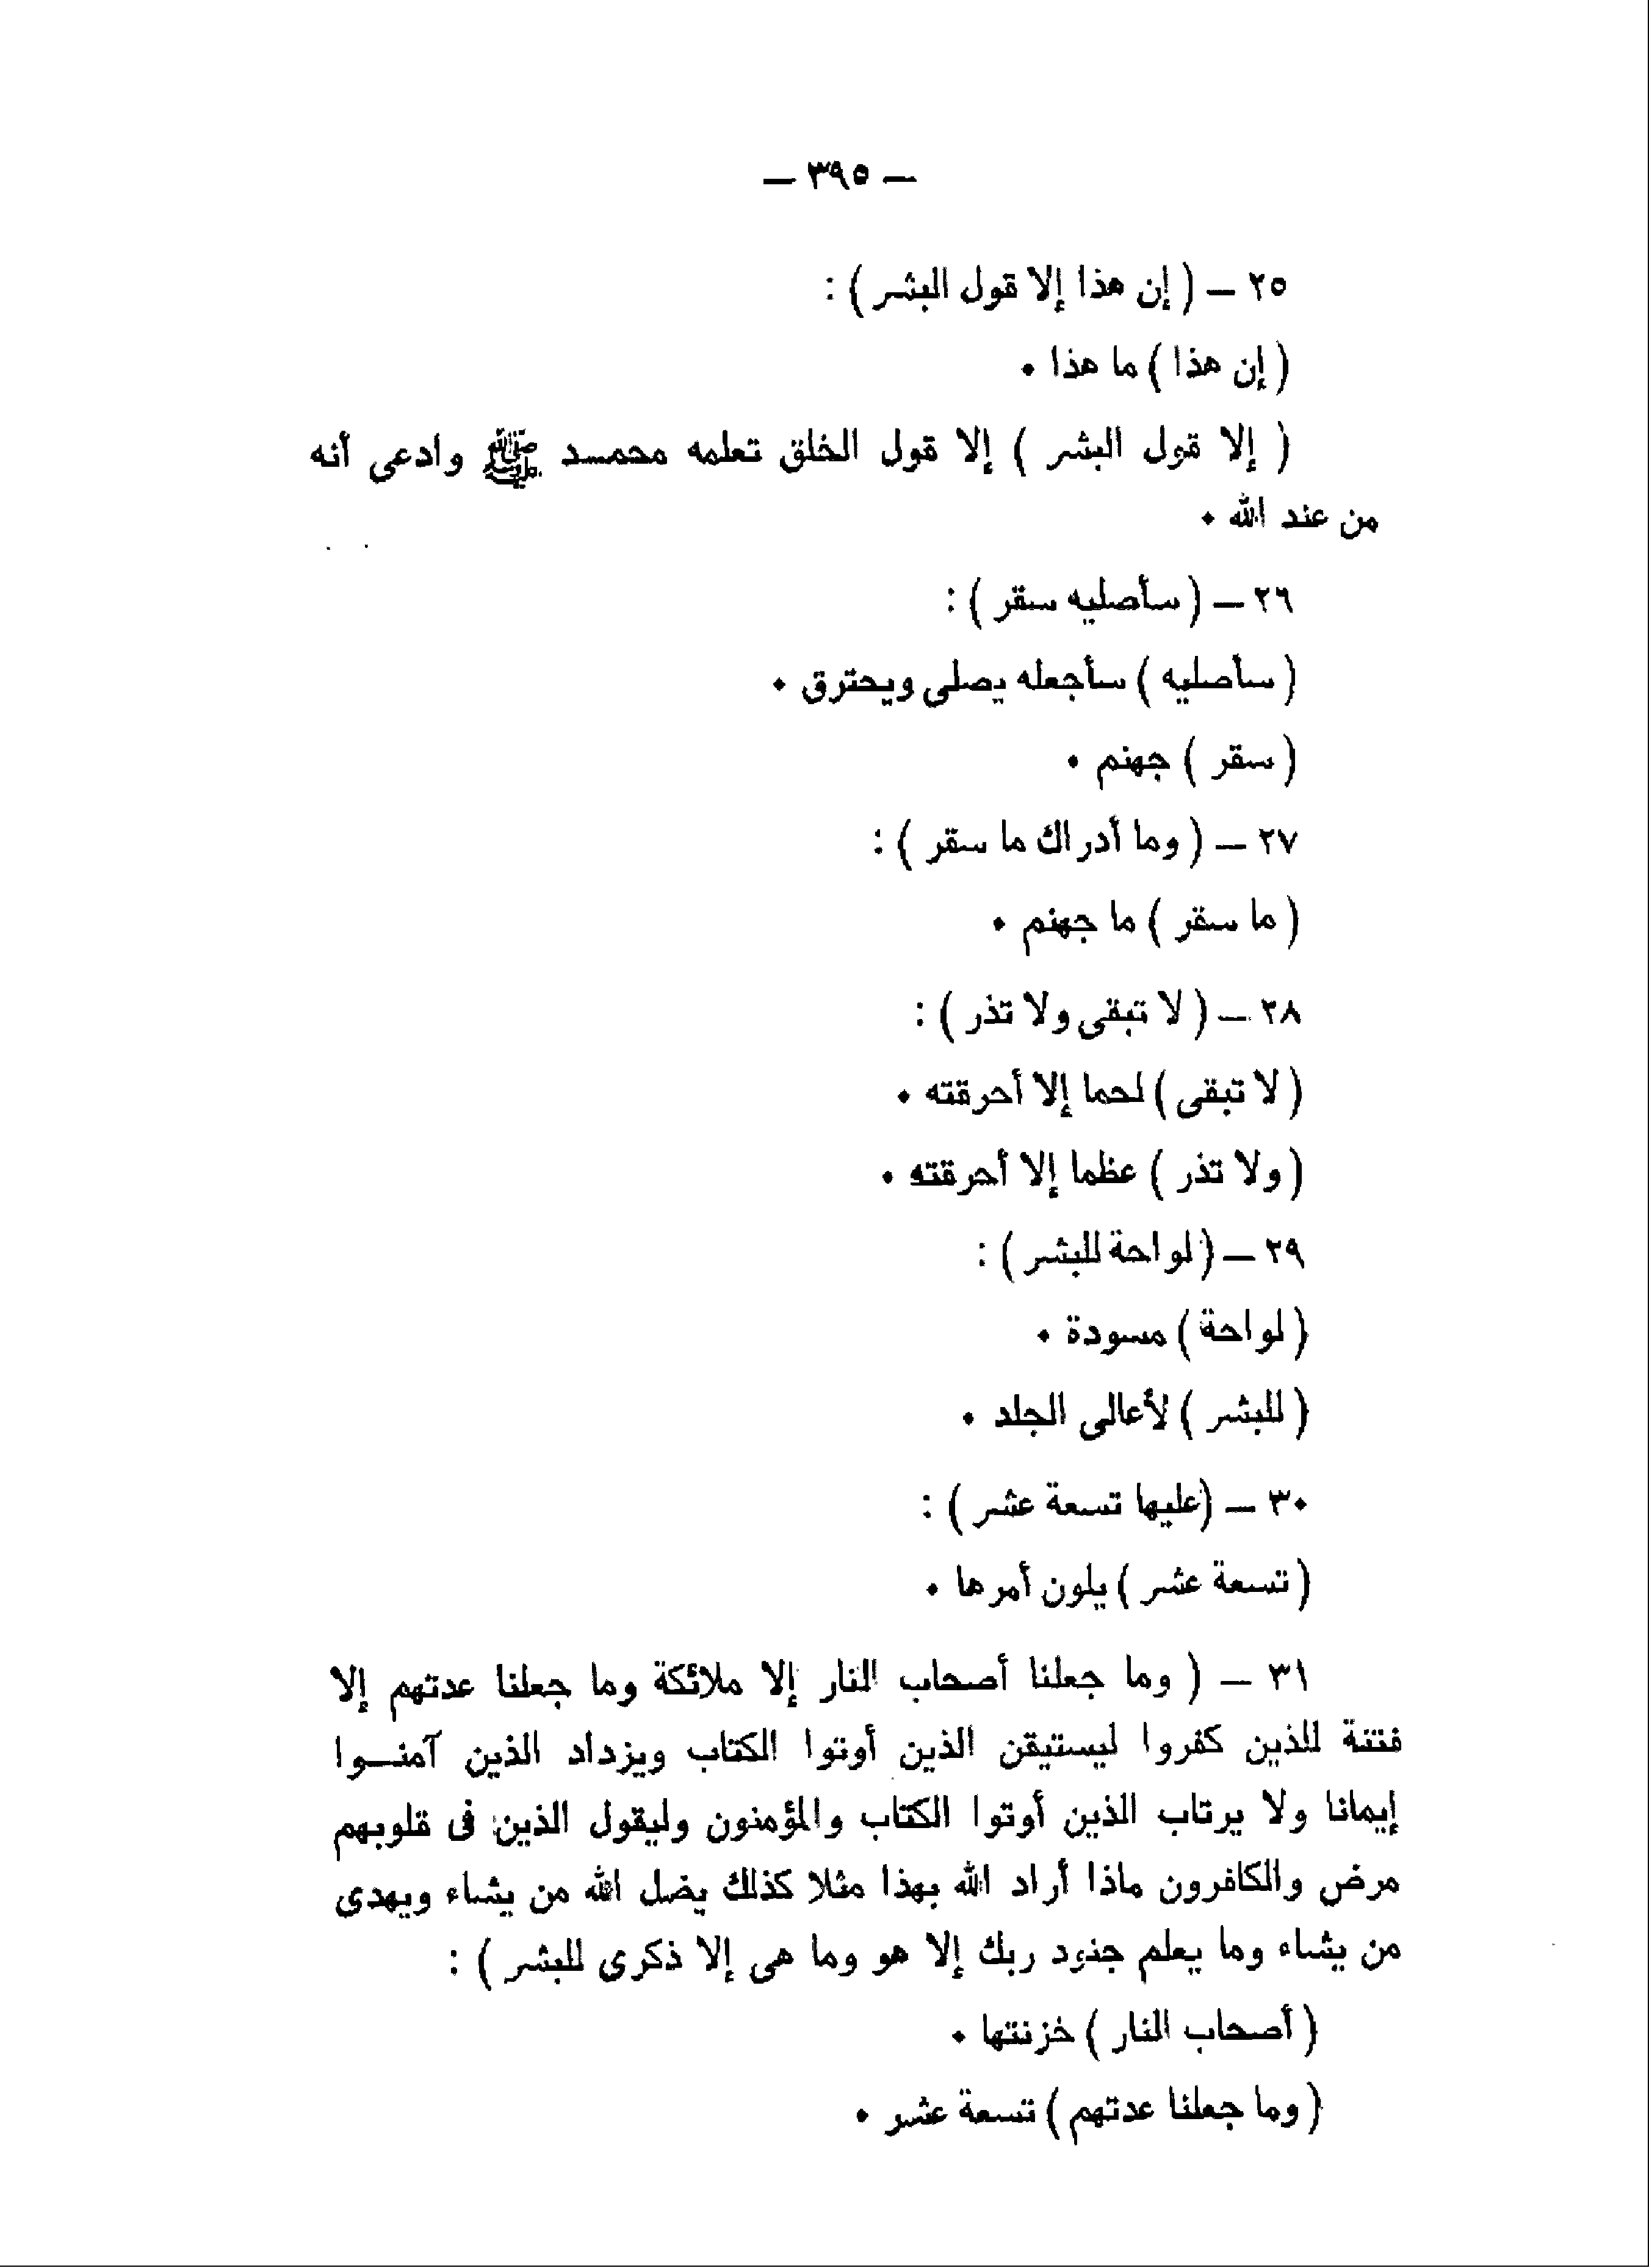 — ٣٩٥ —
٢٥ — ( إن هذا إلا قول البشر ) :
( إن هذا ) ما هذا ٠
( إلا قول البشر ) إلا قول الخلق تعلمه محمد ﷺ وادعى أنه
من عند الله ٠
٢٦ — ( سأصليه سقر ) :
( سأصليه ) سأجعله يصلى ويحترق ٠
( سقر ) جهنم ٠
٢٧ — ( وما أدراك ما سقر ) :
( ما سقر ) ما جهنم ٠
٢٨ — ( لا تبقى ولا تذر ) :
( لا تبقى ) لحما إلا أحرقته ٠
( ولا تذر ) عظما إلا أحرقته ٠
٢٩ — ( لواحة للبشر ) :
( لواحة ) مسودة ٠
( للبشر ) لأعالى الجلد ٠
٣٠ — (عليها تسعة عشر ) :
( تسعة عشر ) يلون أمرها ٠
٣١ — ( وما جعلنا أصحاب النار إلا ملائكة وما جعلنا عدتهم إلا
فتنة للذين كفروا ليستيقن الذين أوتوا الكتاب ويزداد الذين آمنــوا
إيمانا ولا يرتاب الذين أوتوا الكتاب والمؤمنون وليقول الذين فى قلوبهم
مرض والكافرون ماذا أراد الله بهذا مثلا كذلك يضل الله من يشاء ويهدى
من يشاء وما يعلم جنود ربك إلا هو وما هى إلا ذكرى للبشر ) :
( أصحاب النار ) خزنتها ٠
( وما جعلنا عدتهم ) تسعة عشر ٠